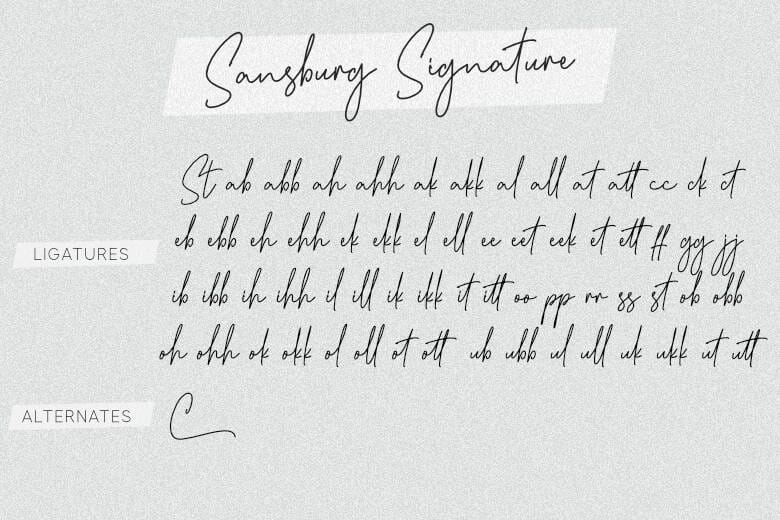 Sansburg Signature
St ab abb ah ahh ak akk al all at att cc ck ct
LIGATURES
eb ebb eh ehh ek ekk el ell ee eet eek et ett ff gg jj
ib ibb ih ihh il ill ik ikk it itt oo pp rr ss st ob obb
oh ohh ok okk ol oll ot ott ub ubb ul ull uk ukk ut utt
ALTERNATES
C